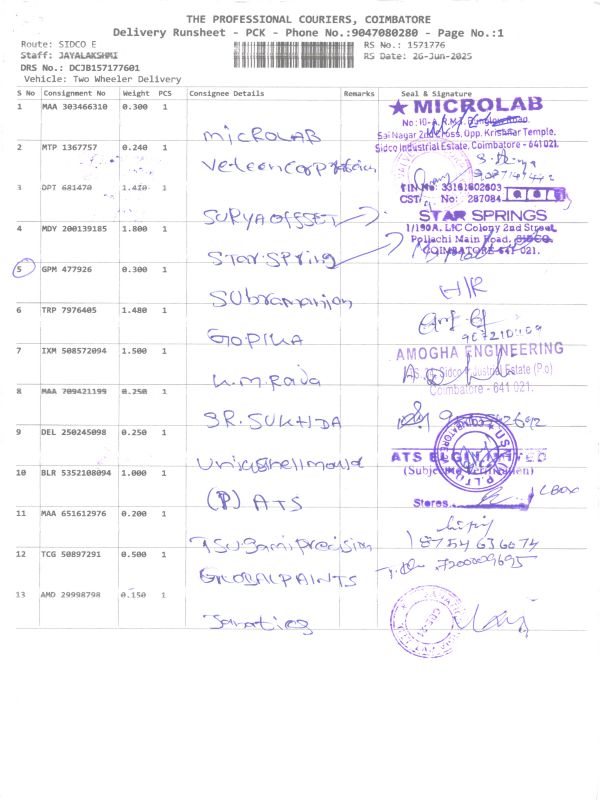 THE PROFESSIONAL COURIERS, COIMBATORE
Delivery Runsheet - PCK - Phone No.:9047080280 - Page No.:1
Route: SIDCO E RS No.: 1571776
Staff: JAYALAKSHMI RS Date: 26-Jun-2025
DRS No.: DCJB157177601
Vehicle: Two Wheeler Delivery
S No Consignment No Weight PCS Consignee Details Remarks Seal & Signature
1 MAA 303466310 0.300 1 MICROLAB
★ MICROLAB
No:10-A, R.M.T. Bunglow Road,
Sai Nagar 2nd Cross, Opp. Krishnar Temple,
Sidco Industrial Estate, Coimbatore - 641 021.
2 MTP 1367757 0.240 1
3 DPT 681470 1.410 1 SURYA OFFSET
TIN No: 33161802603
CST No: 287084
4 MDY 200139185 1.800 1 Star Spring
STAR SPRINGS
1/190A, LIC Colony 2nd Street,
Pollachi Main Road, SIDCO,
COIMBATORE-641 021.
5 GPM 477926 0.300 1 Subramanian H/R
6 TRP 7976405 1.480 1 GOPIKA
7 IXM 508572094 1.500 1 K.M.Raja
AMOGHA ENGINEERING
Sidco Industrial Estate (P.o)
Coimbatore - 641 021.
8 MAA 709421199 0.250 1 SR. SUKHDA
9 DEL 250245098 0.250 1 Unique shell mould
10 BLR 5352108094 1.000 1 (P) ATS
Stores
11 MAA 651612976 0.200 1 Tsugami precision
8754636674
12 TCG 50897291 0.500 1 GLOBAL PAINTS
7200009695
13 AMD 29998798 0.150 1